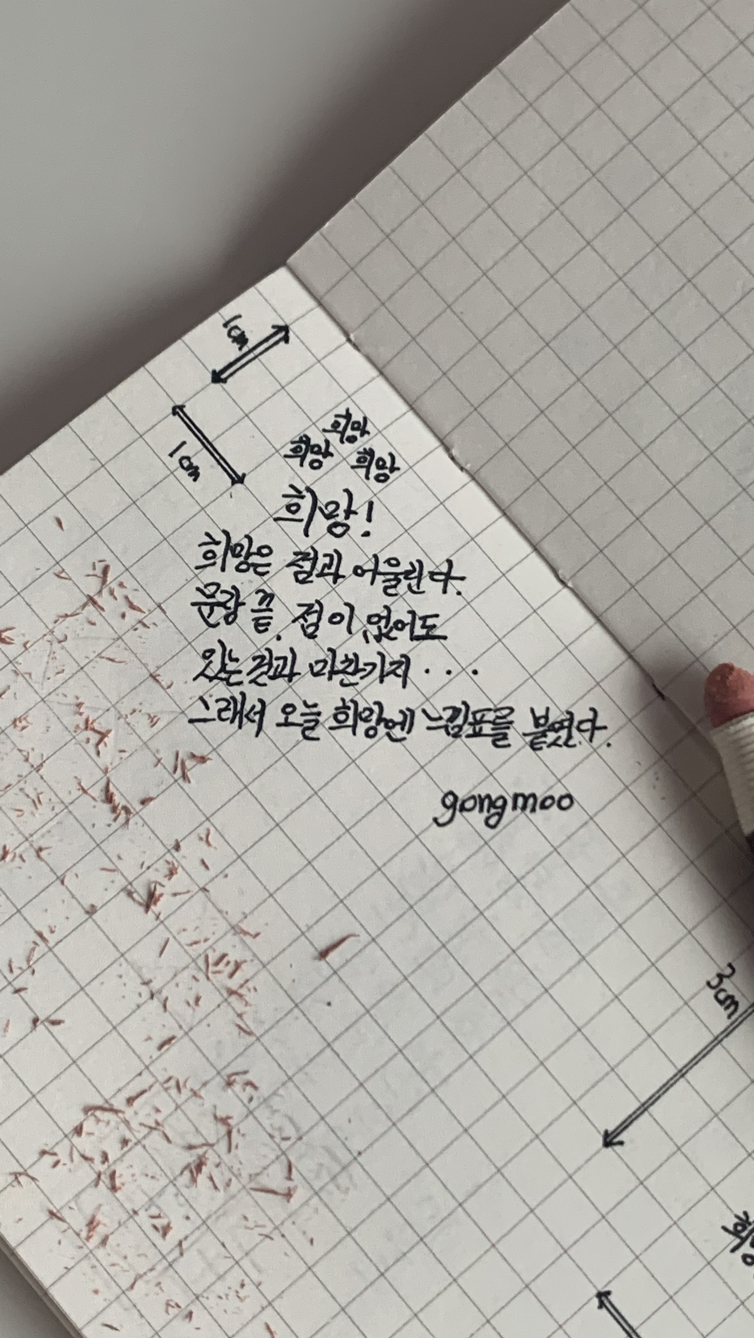 1cm
1cm
희망
희망 희망
희망!
희망은 점과 어울린다.
문장 끝, 점이 없어도
있는 것과 마찬가지...
그래서 오늘 희망엔 느낌표를 붙였다.
gongmoo
3cm